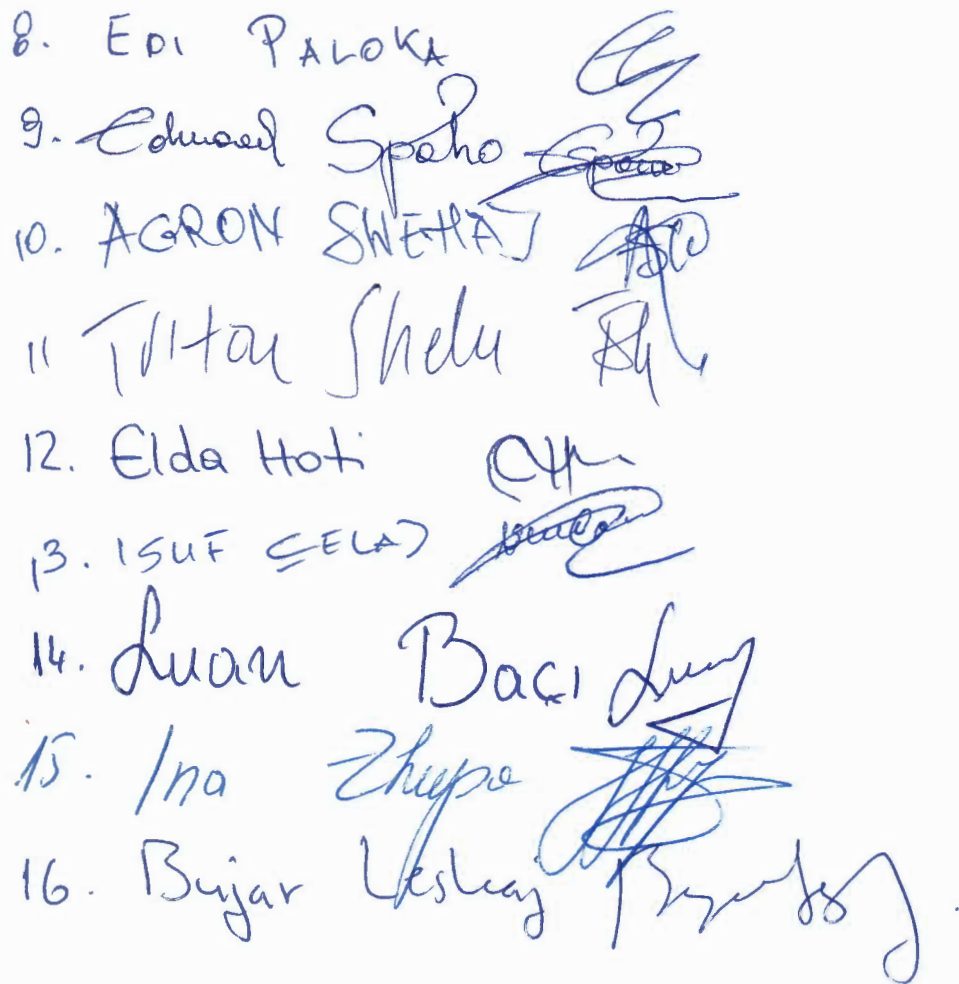 8. EDI PALOKA
9. Eduard Spaho
10. AGRON SHEHAJ
11 Tritan Shehu
12. Elda Hoti
13. ISUF ÇELAJ
14. Luan Baçi
15. Ina Zhupa
16. Bujar Leskaj